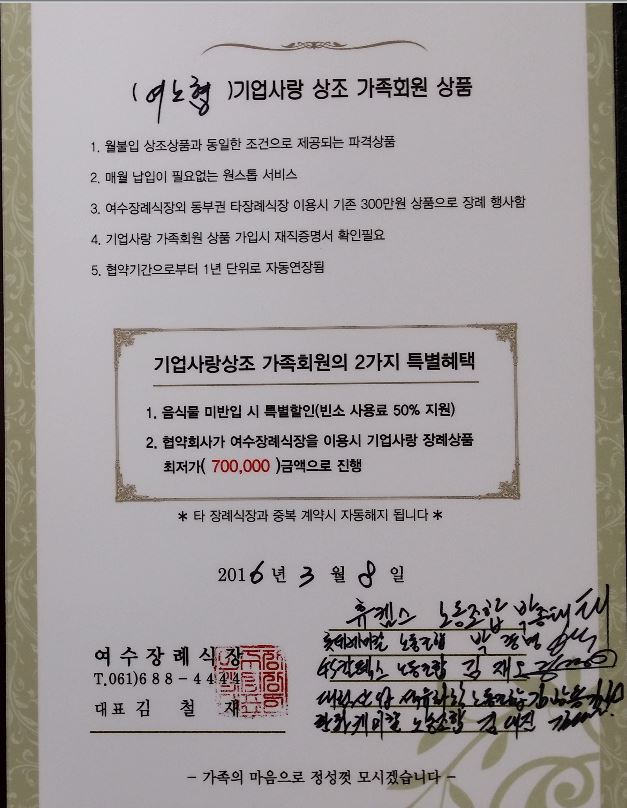 (여노형)기업사랑 상조 가족회원 상품
1. 월불입 상조상품과 동일한 조건으로 제공되는 파격상품
2. 매월 납입이 필요없는 원스톱 서비스
3. 여수장례식장외 동부권 타장례식장 이용시 기존 300만원 상품으로 장례 행사함
4. 기업사랑 가족회원 상품 가입시 재직증명서 확인필요
5. 협약기간으로부터 1년 단위로 자동연장됨
기업사랑상조 가족회원의 2가지 특별혜택
1. 음식물 미반입 시 특별할인(빈소 사용료 50% 지원)
2. 협약회사가 여수장례식장을 이용시 기업사랑 장례상품
최저가( 700,000 )금액으로 진행
* 타 장례식장과 중복 계약시 자동해지 됩니다 *
2016년 3월 8일
휴켐스 노동조합 박종태
롯데케미칼 노동조합 박
GS칼텍스 노동조합 김재도
대림산업 석유화학 노동조합
한화케미칼 노동조합 김
여수장례식장
T.061)688-4444
대표 김 철 재
- 가족의 마음으로 정성껏 모시겠습니다 -